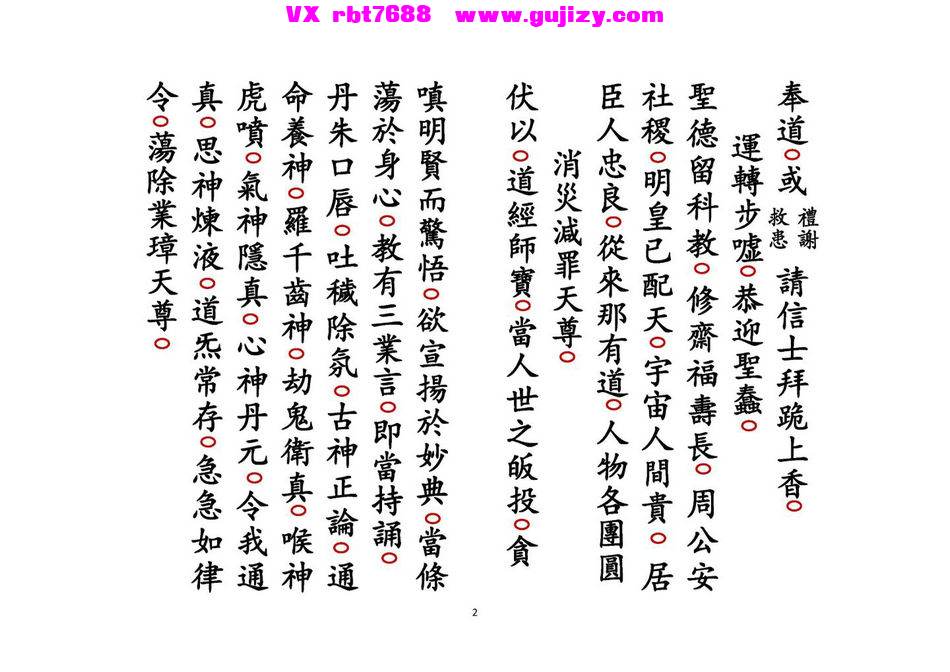 VX rbt7688 www.gujizy.com
奉道○或 禮謝 救患 請信士拜跪上香○
運轉步噓○恭迎聖蠢○
聖德留科教○修齋福壽長○周公安
社稷○明皇已配天○宇宙人間貴○居
臣人忠良○從來那有道○人物各團圓
消災減罪天尊○
伏以○道經師寶○當人世之皈投○貪
嗔明賢而驚悟○欲宣揚於妙典○當條
蕩於身心○教有三業言○即當持誦○
丹朱口唇○吐穢除氛○古神正論○通
命養神○羅千齒神○劫鬼衛真○喉神
虎噴○氣神隱真○心神丹元○令我通
真○思神煉液○道炁常存○急急如律
令○蕩除業璋天尊○
2